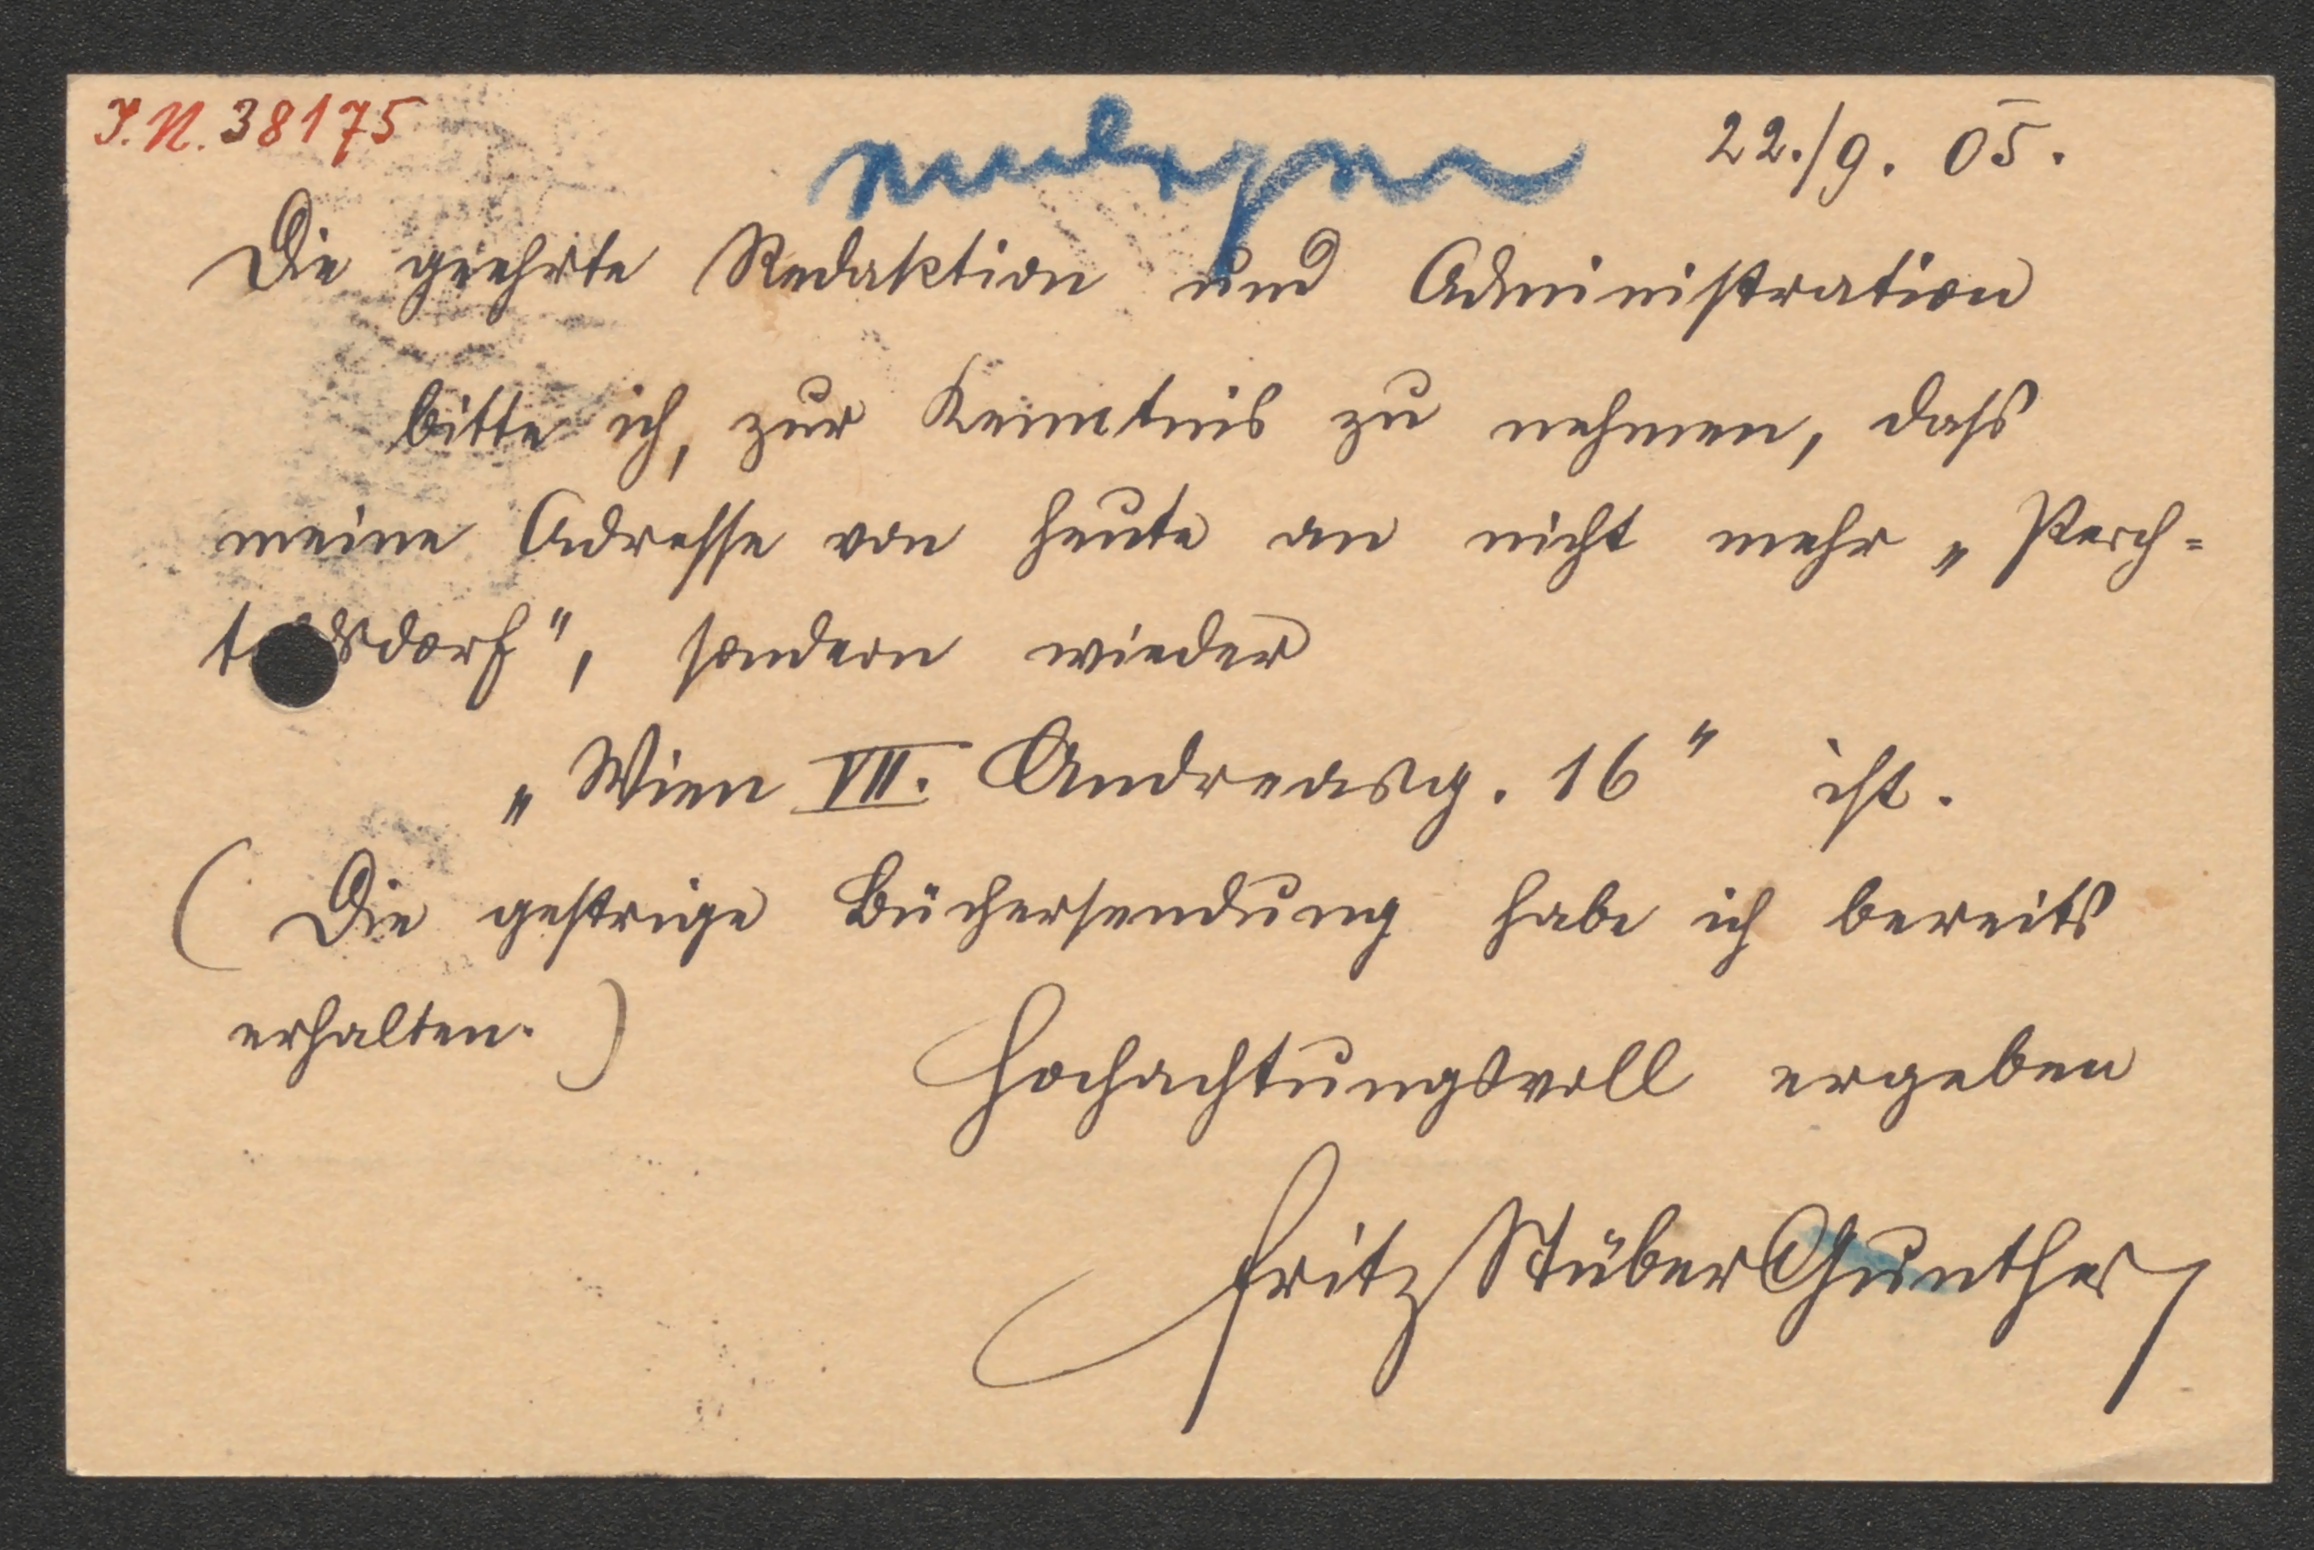 I.N. 38175
22./9. 05.
Die geehrte Redaktion und Administration
bitte ich, zur Kenntnis zu nehmen, dass
meine Adresse von heute an nicht mehr „Perch=
sdorf", sondern wieder
„Wien VII. Andreasg. 16" ist.
(Die gestrige Büchersendung habe ich bereits
erhalten.)
Hochachtungsvoll ergeben
Fritz Stüber Gunther